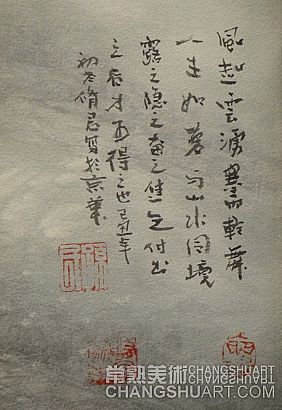 風起雲湧墨飛乾舞
一生如夢与山水同境
露之隐之奋之焦之付出
之后才可得之也己丑年
初冬脩君寫於京華
常熟美術 CHANGSHUART
CHANGSHUART.COM